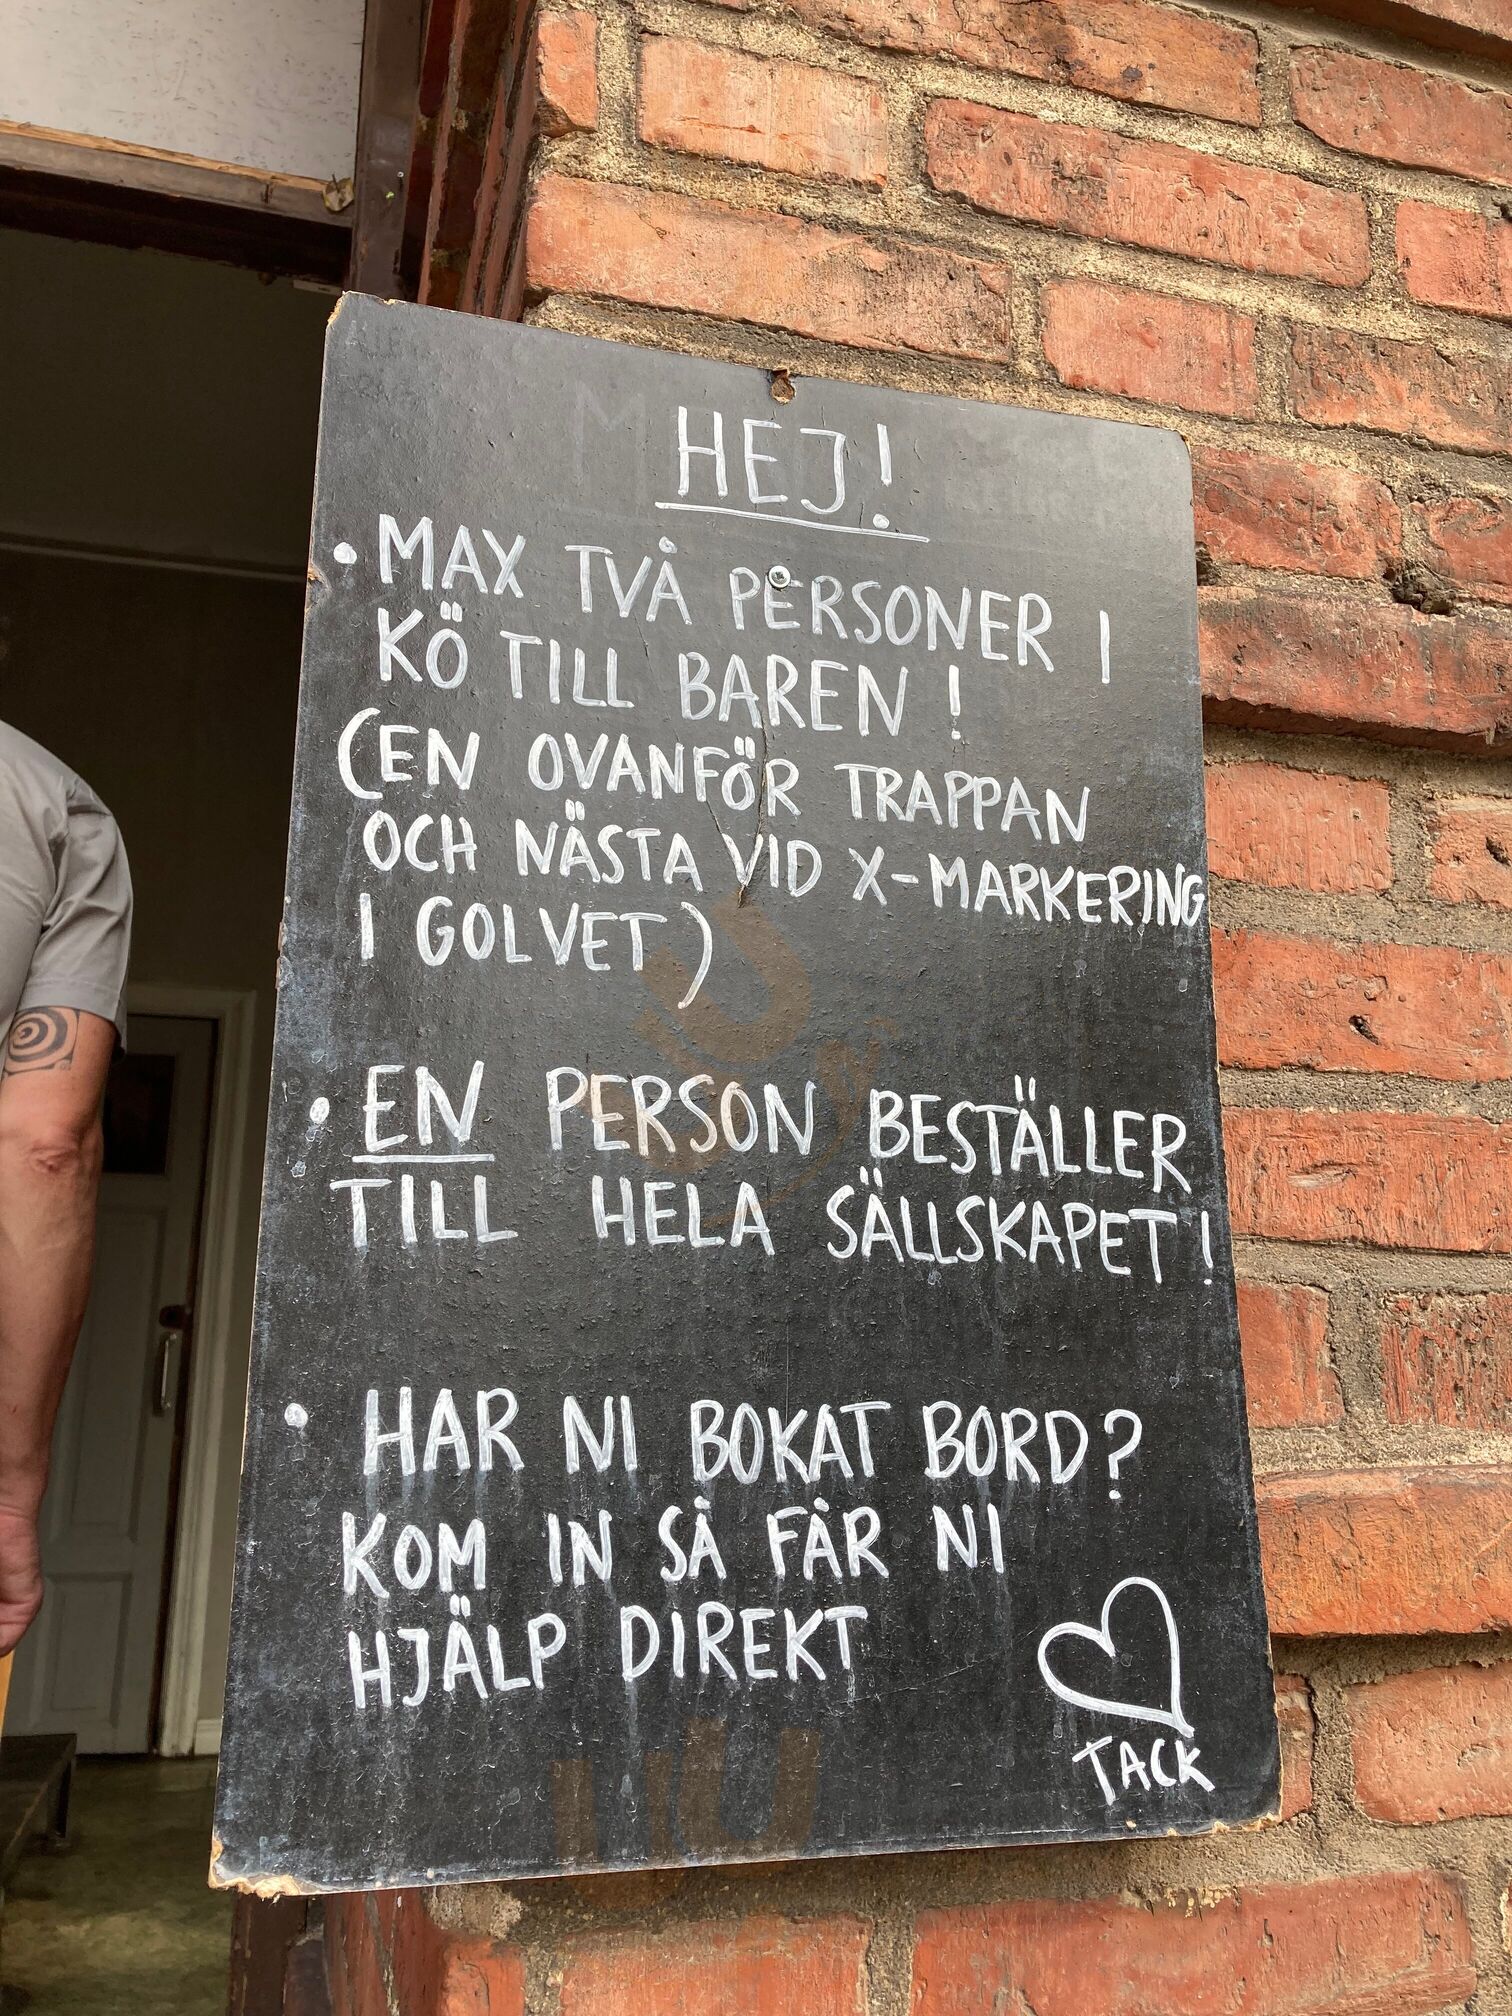 HEJ!
• MAX TVÅ PERSONER I
KÖ TILL BAREN!
(EN OVANFÖR TRAPPAN
OCH NÄSTA VID X-MARKERING
I GOLVET)
• EN PERSON BESTÄLLER
TILL HELA SÄLLSKAPET!
• HAR NI BOKAT BORD?
KOM IN SÅ FÅR NI
HJÄLP DIREKT
TACK